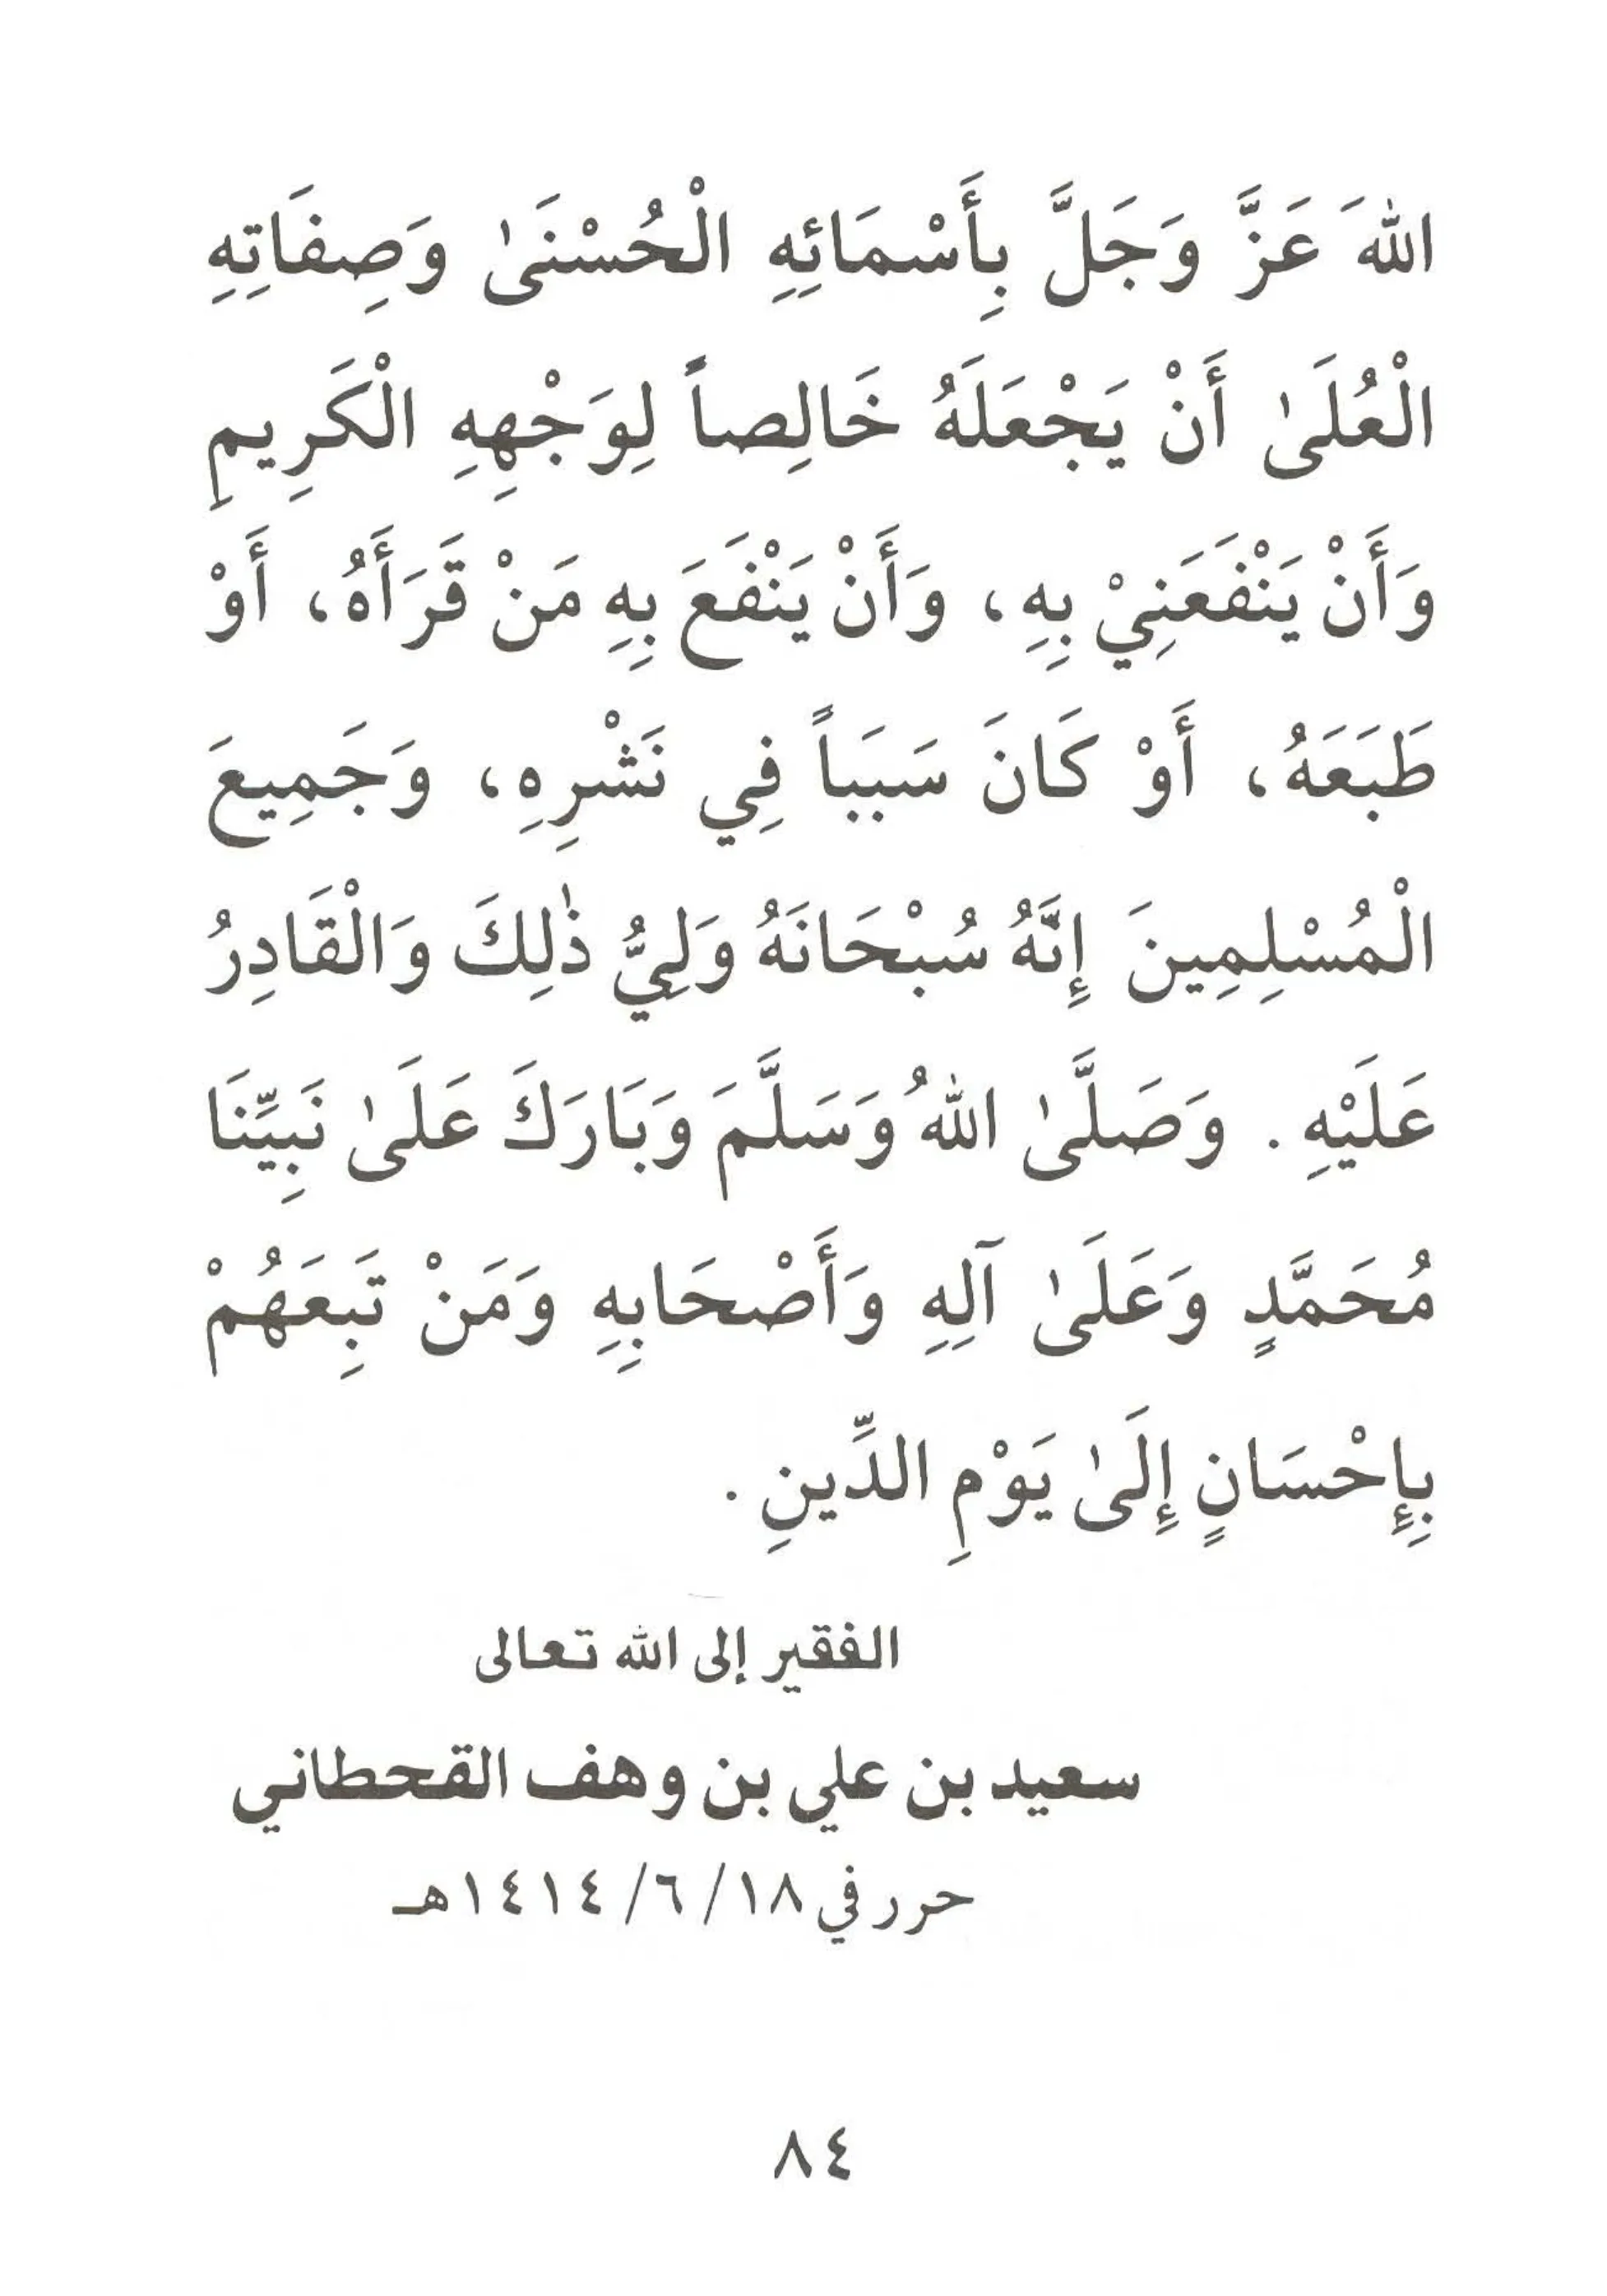 اللهَ عَزَّ وَجَلَّ بِأَسْمَائِهِ الْحُسْنَىٰ وَصِفَاتِهِ
الْعُلَىٰ أَنْ يَجْعَلَهُ خَالِصاً لِوَجْهِهِ الْكَرِيمِ
وَأَنْ يَنْفَعَنِيْ بِهِ، وَأَنْ يَنْفَعَ بِهِ مَنْ قَرَأَهُ، أَوْ
طَبَعَهُ، أَوْ كَانَ سَبَباً فِي نَشْرِهِ، وَجَمِيعَ
الْمُسْلِمِينَ إِنَّهُ سُبْحَانَهُ وَلِيُّ ذٰلِكَ وَالْقَادِرُ
عَلَيْهِ. وَصَلَّىٰ اللهُ وَسَلَّمَ وَبَارَكَ عَلَىٰ نَبِيِّنَا
مُحَمَّدٍ وَعَلَىٰ آلِهِ وَأَصْحَابِهِ وَمَنْ تَبِعَهُمْ
بِإِحْسَانٍ إِلَىٰ يَوْمِ الدِّينِ.
الفقير إلى الله تعالى
سعيد بن علي بن وهف القحطاني
حرر في ١٨/ ٦/ ١٤١٤هـ
٨٤